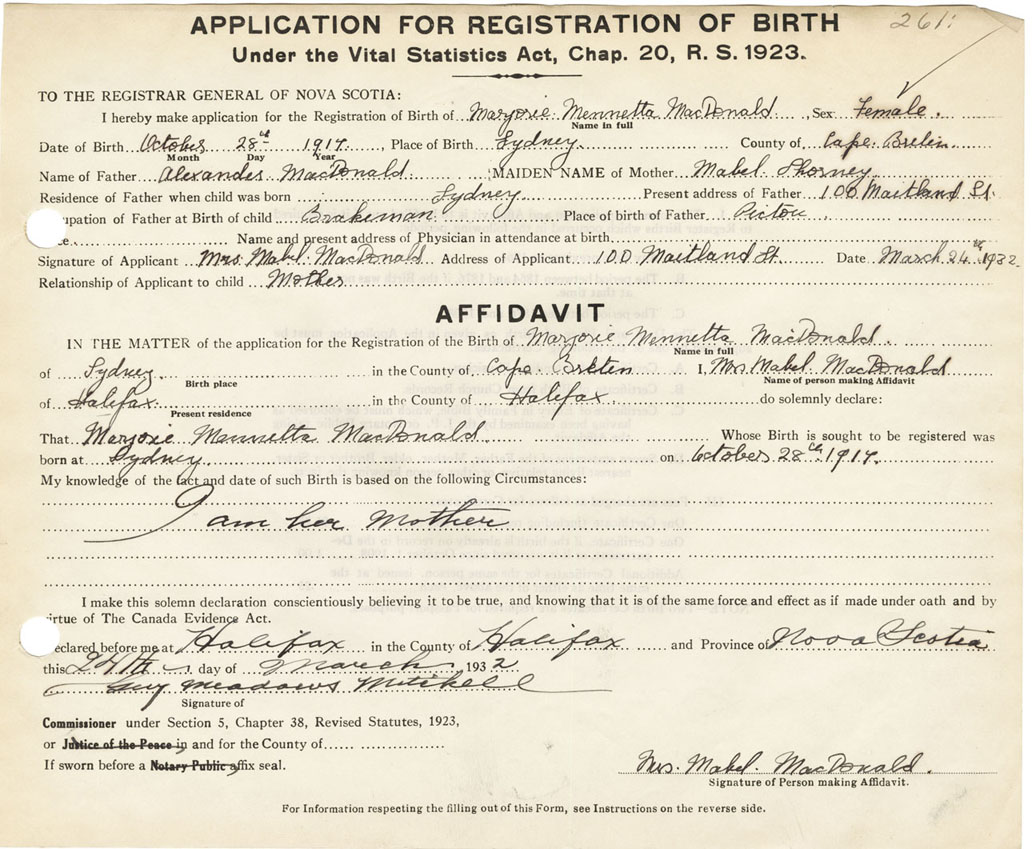 261
APPLICATION FOR REGISTRATION OF BIRTH
Under the Vital Statistics Act, Chap. 20, R. S. 1923.
TO THE REGISTRAR GENERAL OF NOVA SCOTIA:
I hereby make application for the Registration of Birth of Marjorie Mennetta MacDonald, Sex Female.
Name in full
Date of Birth October 28th 1917, Place of Birth Sydney. County of Cape Breton.
Month Day Year
Name of Father Alexander MacDonald. MAIDEN NAME of Mother Mabel
Residence of Father when child was born Sydney Present address of Father 100 Maitland St.
upation of Father at Birth of child Brakeman Place of birth of Father Pictou
Name and present address of Physician in attendance at birth
Signature of Applicant Mrs. Mabel. MacDonald Address of Applicant 100 Maitland St Date March 24th 1932.
Relationship of Applicant to child Mother
AFFIDAVIT
IN THE MATTER of the application for the Registration of the Birth of Marjorie Mennetta MacDonald.
Name in full
of Sydney. in the County of Cape Breton I, Mrs. Mabel MacDonald
Birth place Name of person making Affidavit
of Halifax. in the County of Halifax. do solemnly declare:
Present residence
That Marjorie Mennetta MacDonald Whose Birth is sought to be registered was
born at Sydney. on October 28th 1917.
My knowledge of the fact and date of such Birth is based on the following Circumstances:
I am her Mother
I make this solemn declaration conscientiously believing it to be true, and knowing that it is of the same force and effect as if made under oath and by
irtue of The Canada Evidence Act.
eclared before me at Halifax in the County of Halifax and Province of Nova Scotia
this 24th day of March 1932
Guy Meadows Mitchell
Signature of
Commissioner under Section 5, Chapter 38, Revised Statutes, 1923,
or Justice of the Peace in and for the County of
If sworn before a Notary Public affix seal.
Mrs. Mabel. MacDonald.
Signature of Person making Affidavit.
For Information respecting the filling out of this Form, see Instructions on the reverse side.